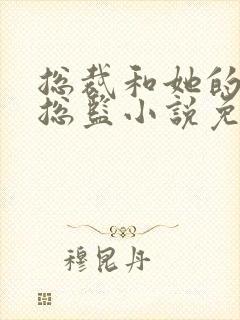 总裁和她的
总监小说免
穆昆丹